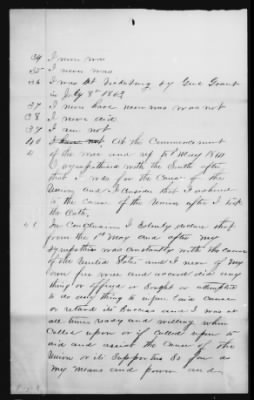 34 I never was
35 I never was
36 I was at Vicksburg by Genl Grant
in July 8th 1863
37 I never have never was was not
38 I never did
39 I am not
40 I have not. At the Commencement
of the war and up to 1st May 1861
I sympathised with the South after
that I was for the Cause of the
Union and I consider that I adhered
to the cause of the Union after I took
the Oath.
In Conclusion I solemnly declare that
from the 1st May and after my
sympathies was constantly with the cause
of the United States and I never of my
own free will and accord did any
thing or offered or sought or attempted
to do any thing to injure said cause
or retard its success and I was at
all times ready and willing when
called upon or if called upon to
aid and assist the cause of the
Union or its supporters so far as
my means and power and